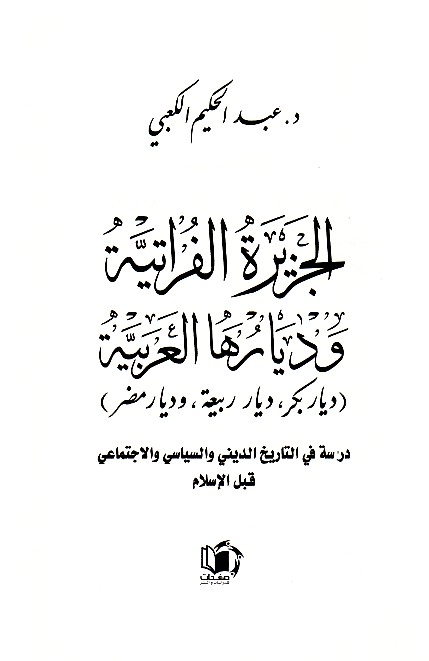 د. عبد الحكيم الكعبي
الجَزيرَةُ الفُراتيَّة
وَدْيَارُهَا العَرَبيَّة
(ديار بكر، ديار ربيعة، وديار مضر)
درسة في التاريخ الديني والسياسي والاجتماعي
قبل الإسلام
صفحات